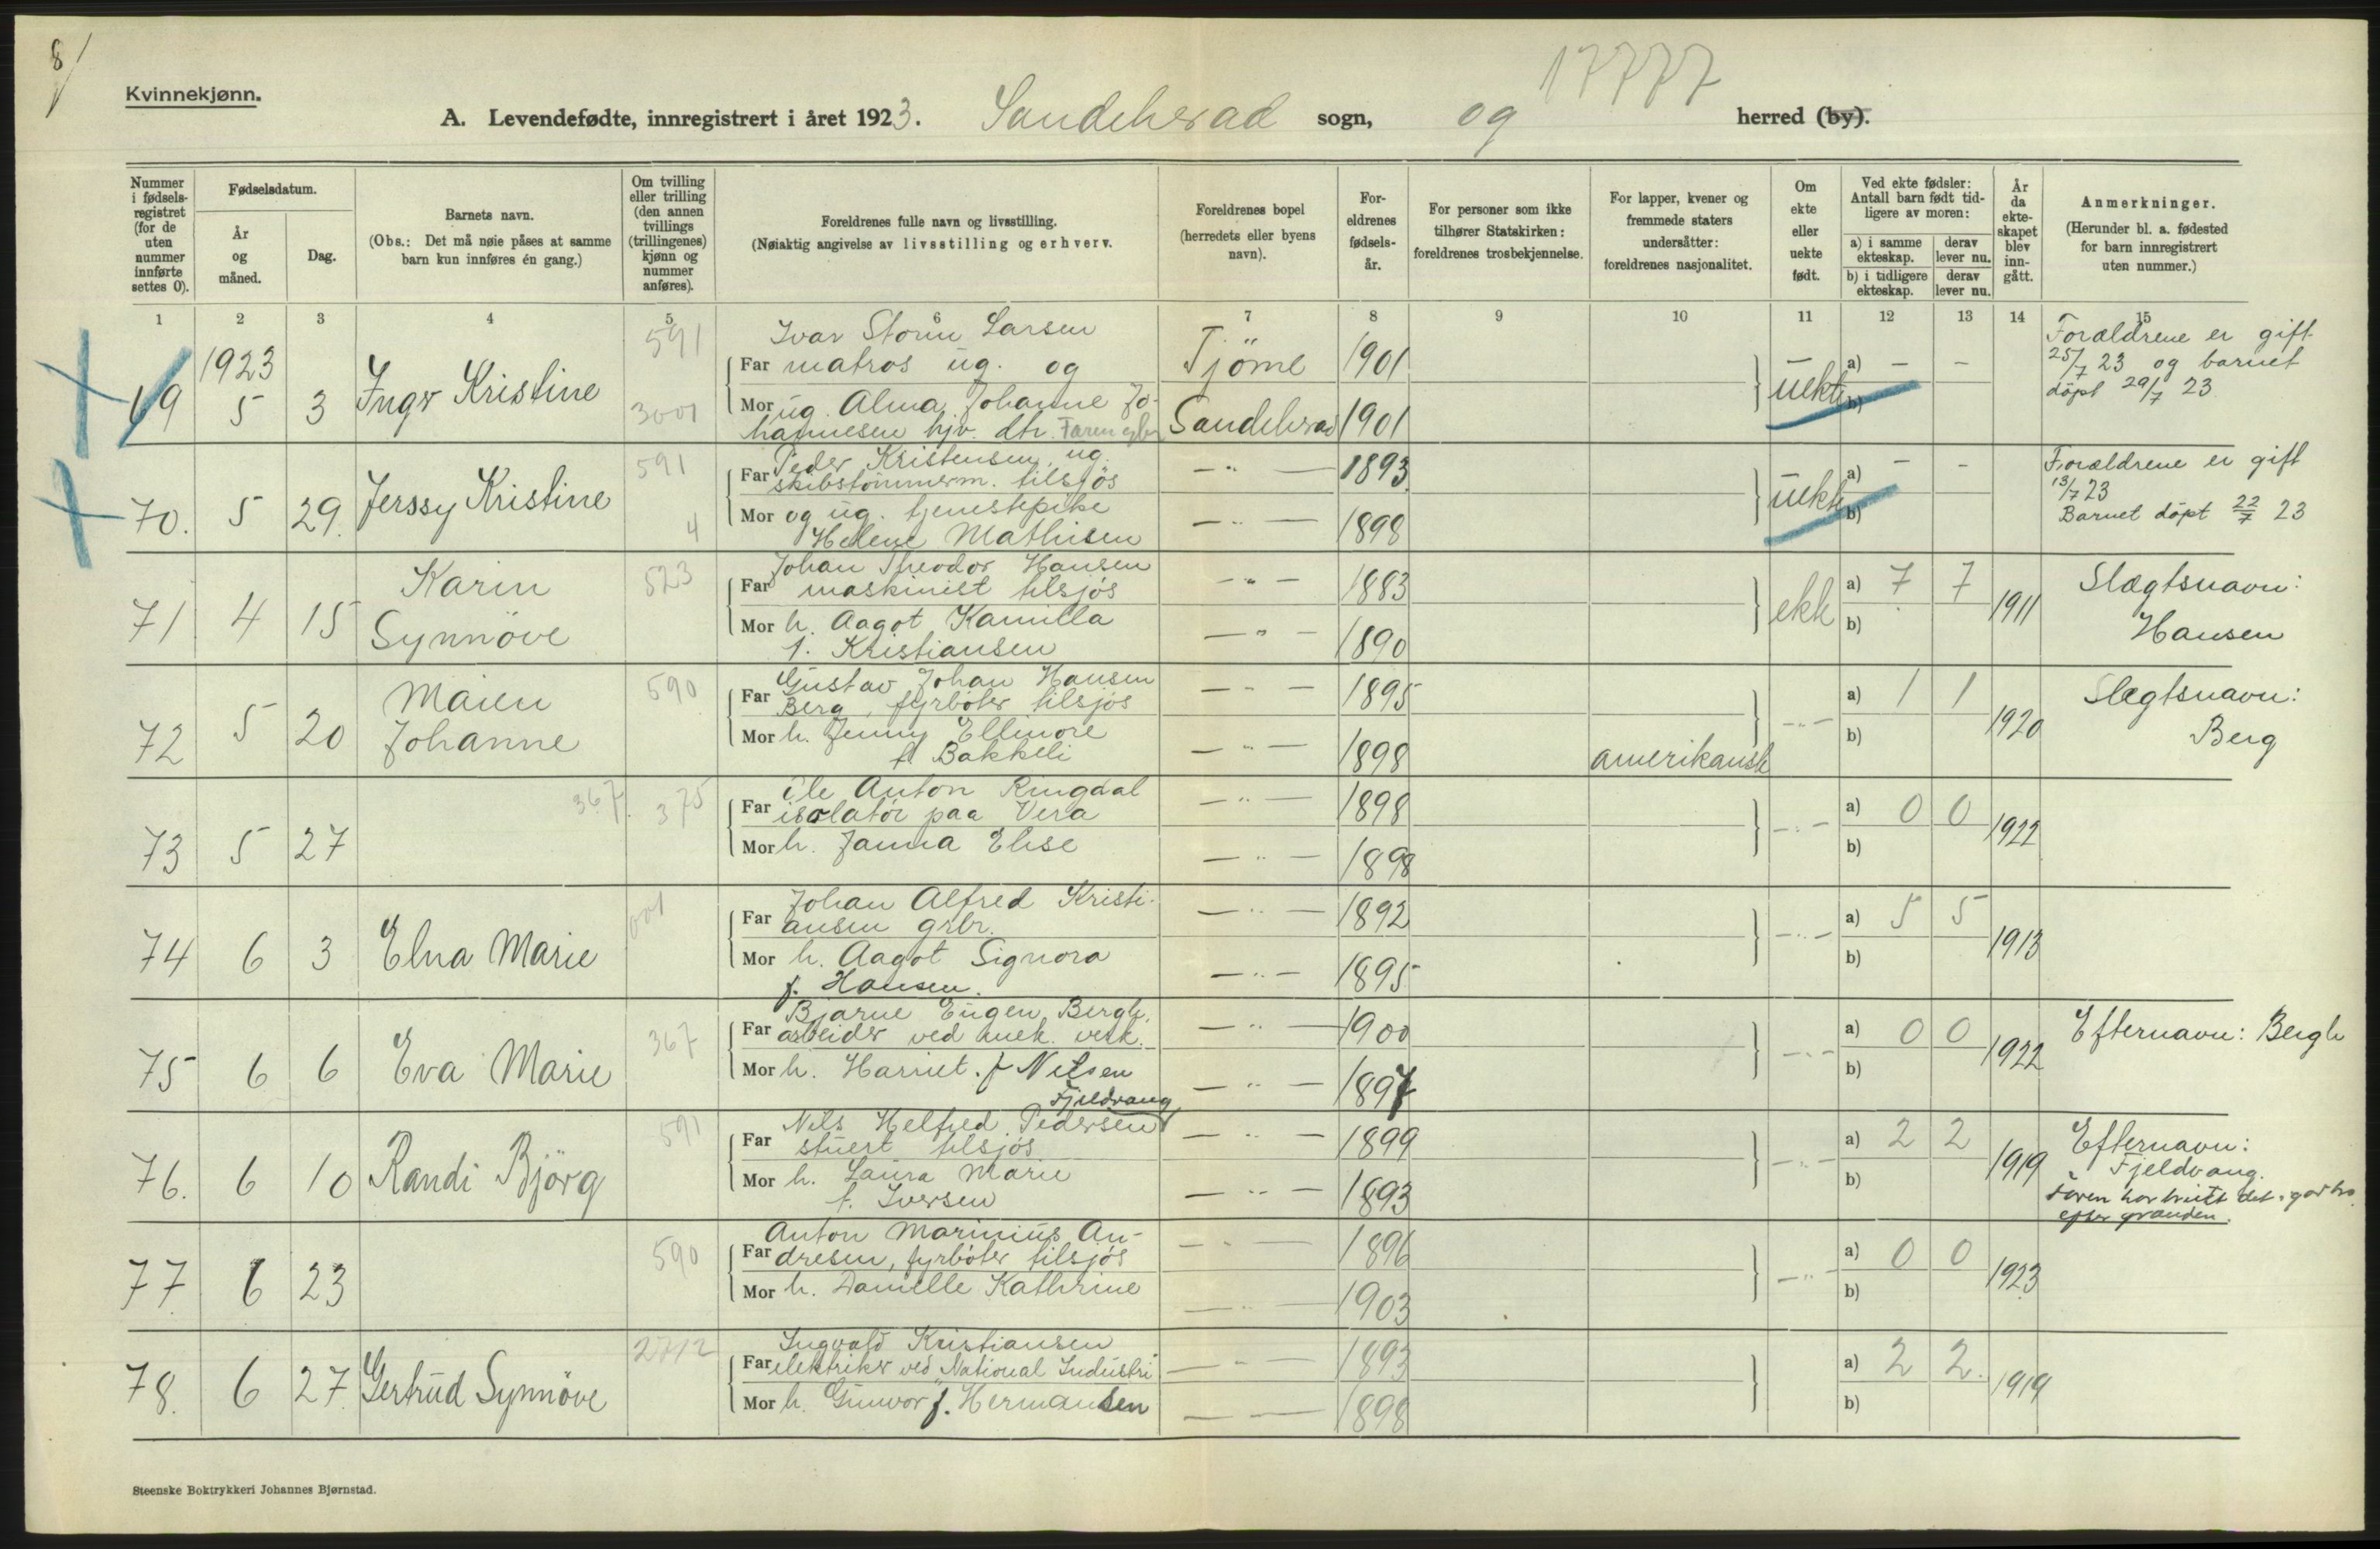 8
Kvinnekjønn.
17777
A. Levendefødte, innregistrert i året 1923. Sandeherad sogn, og herred (by).
Nummer i fødsels-registret (for de uten nummer innførte settes 0).
Fødselsdatum.
År og måned.
Dag.
Barnets navn.
(Obs.: Det må nøie påses at samme barn kun innføres én gang.)
Om tvilling eller trilling (den annen tvillings (trillingenes) kjønn og nummer anføres).
Foreldrenes fulle navn og livsstilling.
(Nøiaktig angivelse av livsstilling og erhverv.
Foreldrenes bopel (herredets eller byens navn).
For-eldrenes fødsels-år.
For personer som ikke tilhører Statskirken: foreldrenes trosbekjennelse.
For lapper, kvener og fremmede staters undersåtter: foreldrenes nasjonalitet.
Om ekte eller uekte født.
Ved ekte fødsler: Antall barn født tid-ligere av moren:
a) i samme ekteskap. derav lever nu.
b) i tidligere ekteskap. derav lever nu.
År da ekte-skapet blev inn-gått.
Anmerkninger.
(Herunder bl. a. fødested for barn innregistrert uten nummer.)
1 2 3 4 5 6 7 8 9 10 11 12 13 14 15
69 1923 5 3 Inger Kristine 591 3001
Ivar Storm Larsen
Far matros ug. og Tjöme 1901
Mor ug. Alma Johanne Jo-
hannesen hjv. dtr. Sandeherad 1901
uekte a) – – b)
Forældrene er gift
25/7 23 og barnet
döpt 29/7 23
70. 5 29. Jerssy Kristine 591 4
Peder Kristensen, ug.
Far skibstömmerm. tilsjös — " — 1893
Mor og ug. tjenestepike
Helene Mathisen — " — 1898
uekte a) – – b)
Forældrene er gift
13/7 23
Barnet döpt 22/7 23
71 4 15 Karin
Synnöve 523
Johan Theodor Hansen
Far maskinist tilsjös — " — 1883
Mor h. Aagot Kamilla
f. Kristiansen — " — 1890
ekte a) 7 7 b) 1911
Slægtsnavn:
Hansen
72 5 20 Maien
Johanne 590
Gustav Johan Hansen
Far Berg, fyrböter tilsjös — " — 1895
Mor h. Jenny Ellinore
f. Bakkeli — " — 1898 amerikansk
— " — a) 1 1 b) 1920
Slegtsnavn:
Berg
73 5 27 367. 375
Ole Anton Ringdal
Far isolatör paa Vera — " — 1898
Mor h. Janna Elise — " — 1898
— " — a) 0 0 b) 1922
74 6 3 Elna Marie 001
Johan Alfred Kristi-
Far ansen grbr. — " — 1892
Mor h. Aagot Signora
f. Hansen. — " — 1895
— " — a) 5 5 b) 1913
75 6 6 Eva Marie 367
Bjarne Eugen Bergh,
Far arbeider ved mek. verk. — " — 1900
Mor h. Harriet. f Nilsen — " — 1897
— " — a) 0 0 b) 1922
Efternavn: Bergh
76. 6 10 Randi Björg 591
Fjeldvang
Nils Helfred Pedersen
Far stuert tilsjös — " — 1899
Mor h. Laura Marie
f. Iversen — " — 1893
— " — a) 2 2 b) 1919
Efternavn:
Fjeldvang.
77. 6 23 590
Anton Marinius An-
Far dresen, fyrböter tilsjös — " — 1896
Mor h. Danielle Kathrine — " — 1903
— " — a) 0 0 b) 1923
78. 6 27. Gertrud Synnöve 2712
Ingvald Kristiansen
Far elektriker ved "National Industri" — " — 1893
Mor h. Gunvor f. Hermansen — — 1898
a) 2 2. b) 1919
Steenske Boktrykkeri Johannes Bjørnstad.